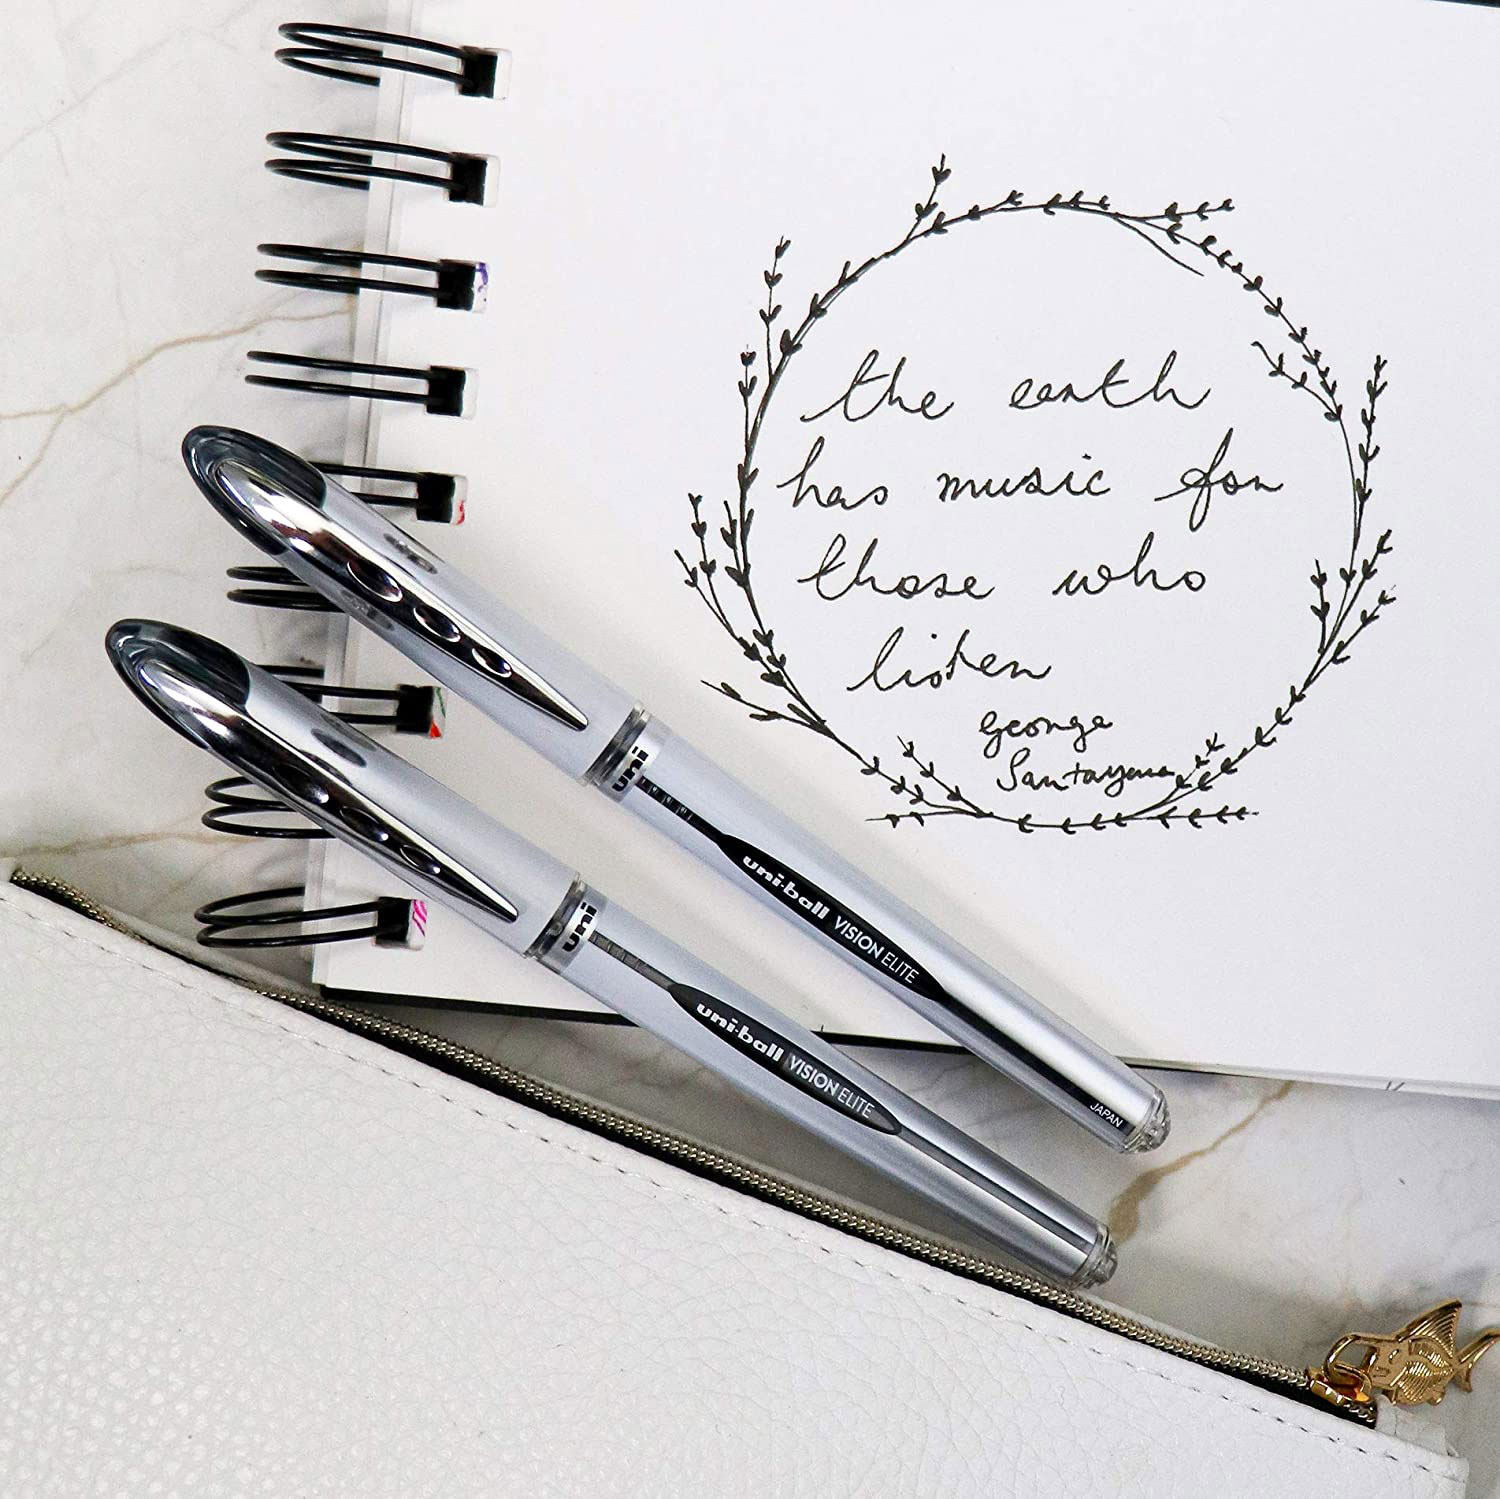 the earth
has music for
those who
listen
george
Santayana
uni
uni-ball VISION ELITE
JAPAN
uni
uni-ball VISION ELITE